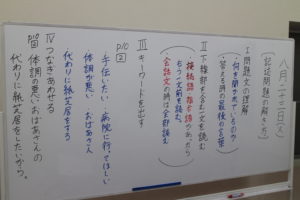 八月二十二日(火)
〔記述問題の解き方〕
Ⅰ問題文の理解
・何を聞かれているのか
(答える時の最後の言葉)
Ⅱ下線部を含む一文を読む
(接続語・指示語があったら
もう一文前を読む。)
(会話文の時は全部読む)
Ⅲキーワードを出す
P10
2
手伝いたい 病院に行ってほしい
体調が悪い おばあさん
代わりに紙芝居をする
Ⅳつなぎあわせる
体調の悪いおばあさんの
代わりに紙芝居をしたいから。